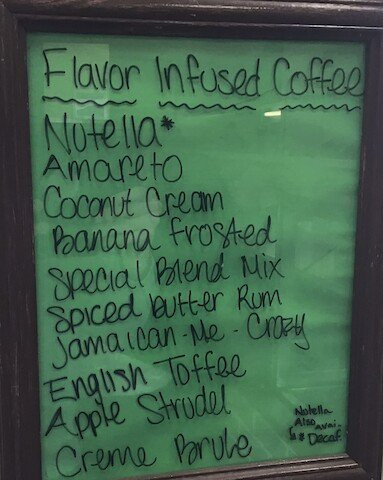 Flavor Infused Coffee
Nutella*
Amareto
Coconut Cream
Banana Frosted
Special Blend Mix
Spiced Butter Rum
Jamaican-Me-Crazy
English Toffee
Apple Strudel
Creme Brule
Nutella
Also Avai-
Decaf